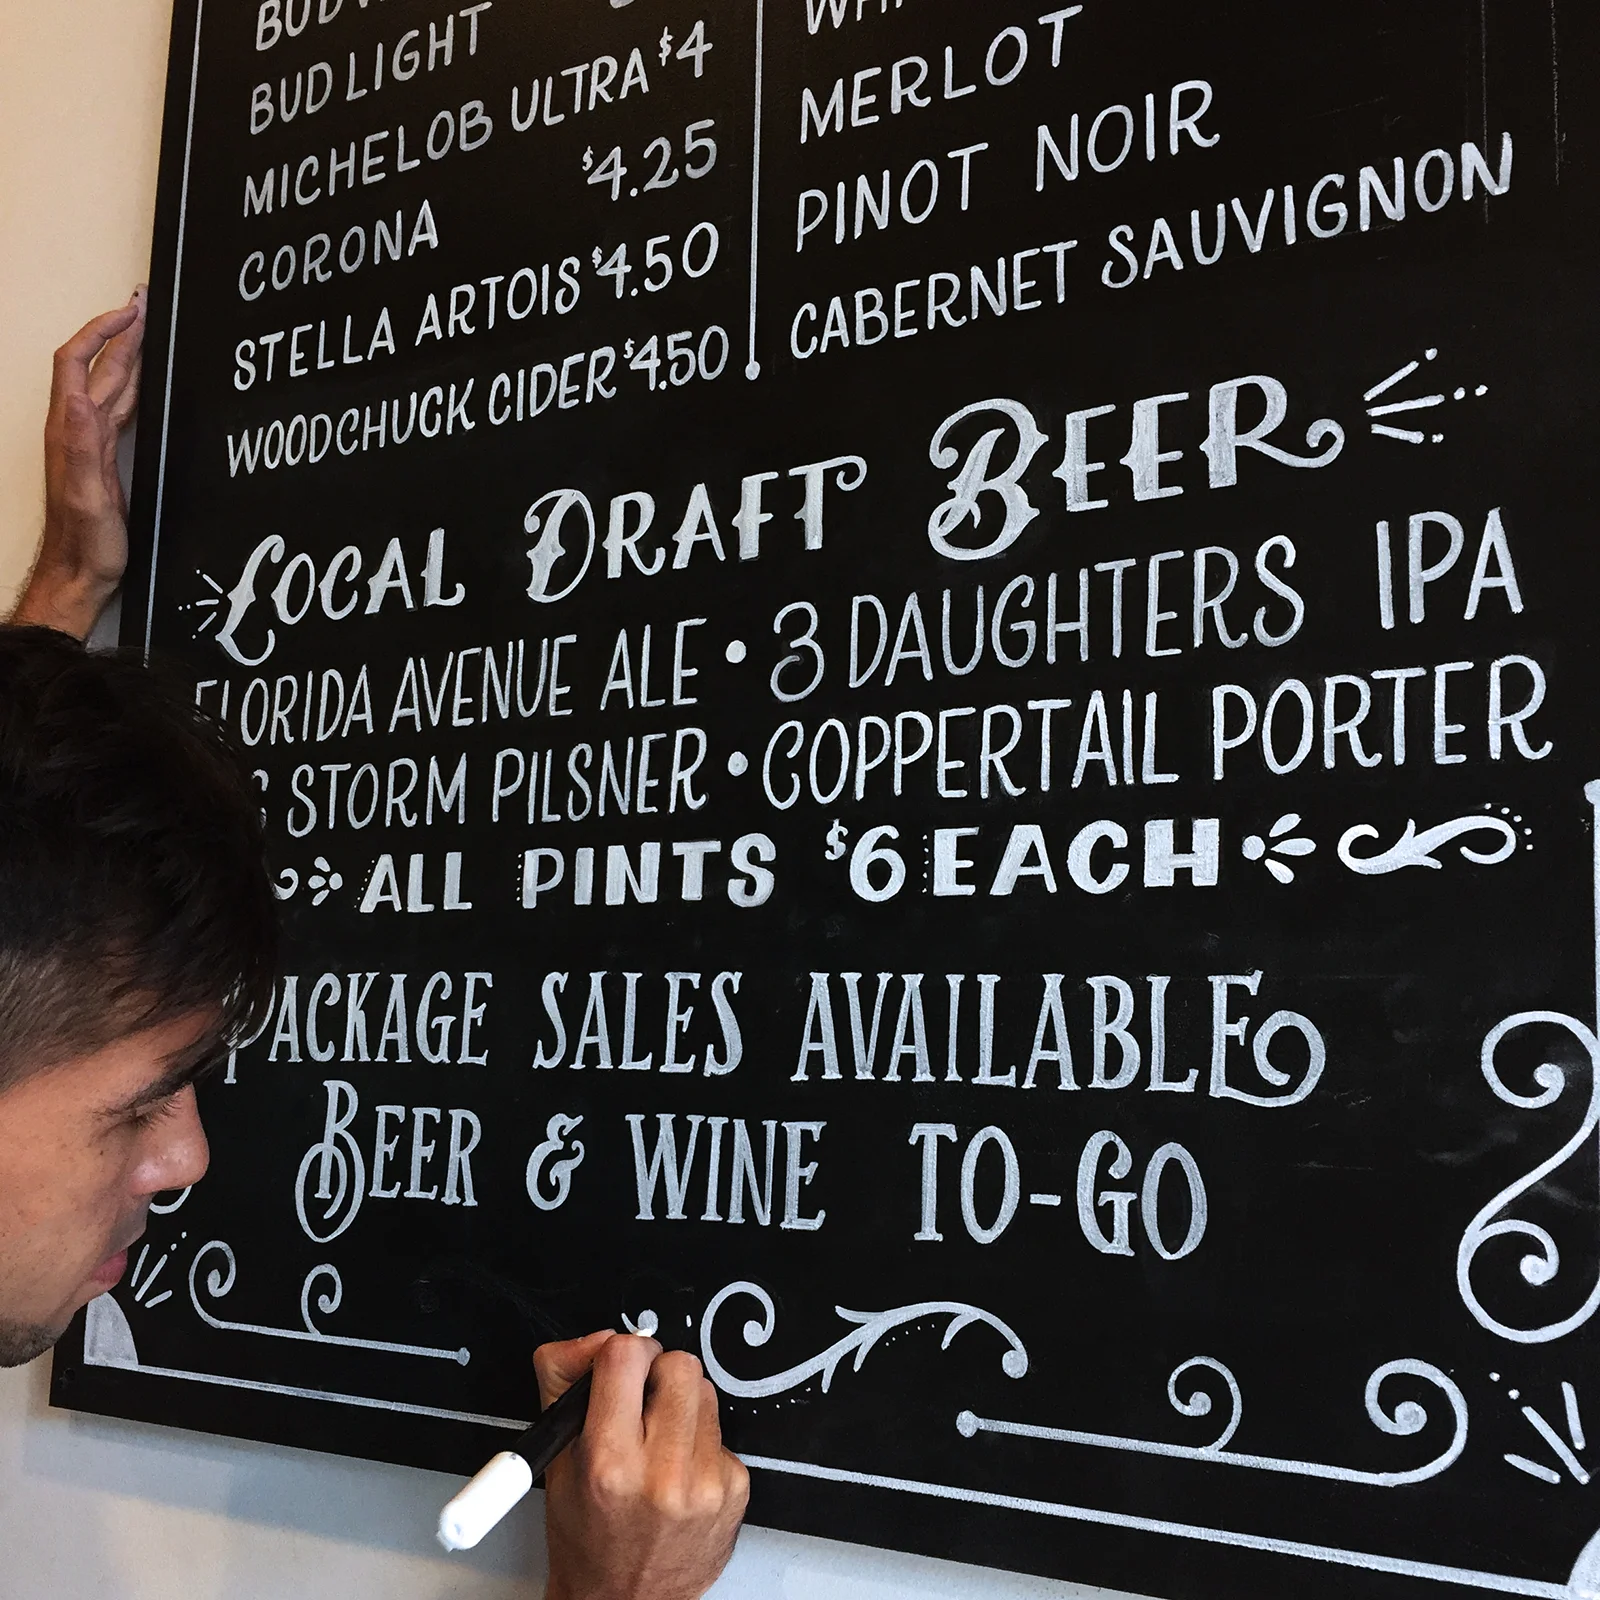 BUD LIGHT
MICHELOB ULTRA $4
CORONA $4.25
STELLA ARTOIS $4.50
WOODCHUCK CIDER $4.50
MERLOT
PINOT NOIR
CABERNET SAUVIGNON
LOCAL DRAFT BEER
FLORIDA AVENUE ALE • 3 DAUGHTERS IPA
STORM PILSNER • COPPERTAIL PORTER
ALL PINTS $6 EACH
PACKAGE SALES AVAILABLE
BEER & WINE TO-GO